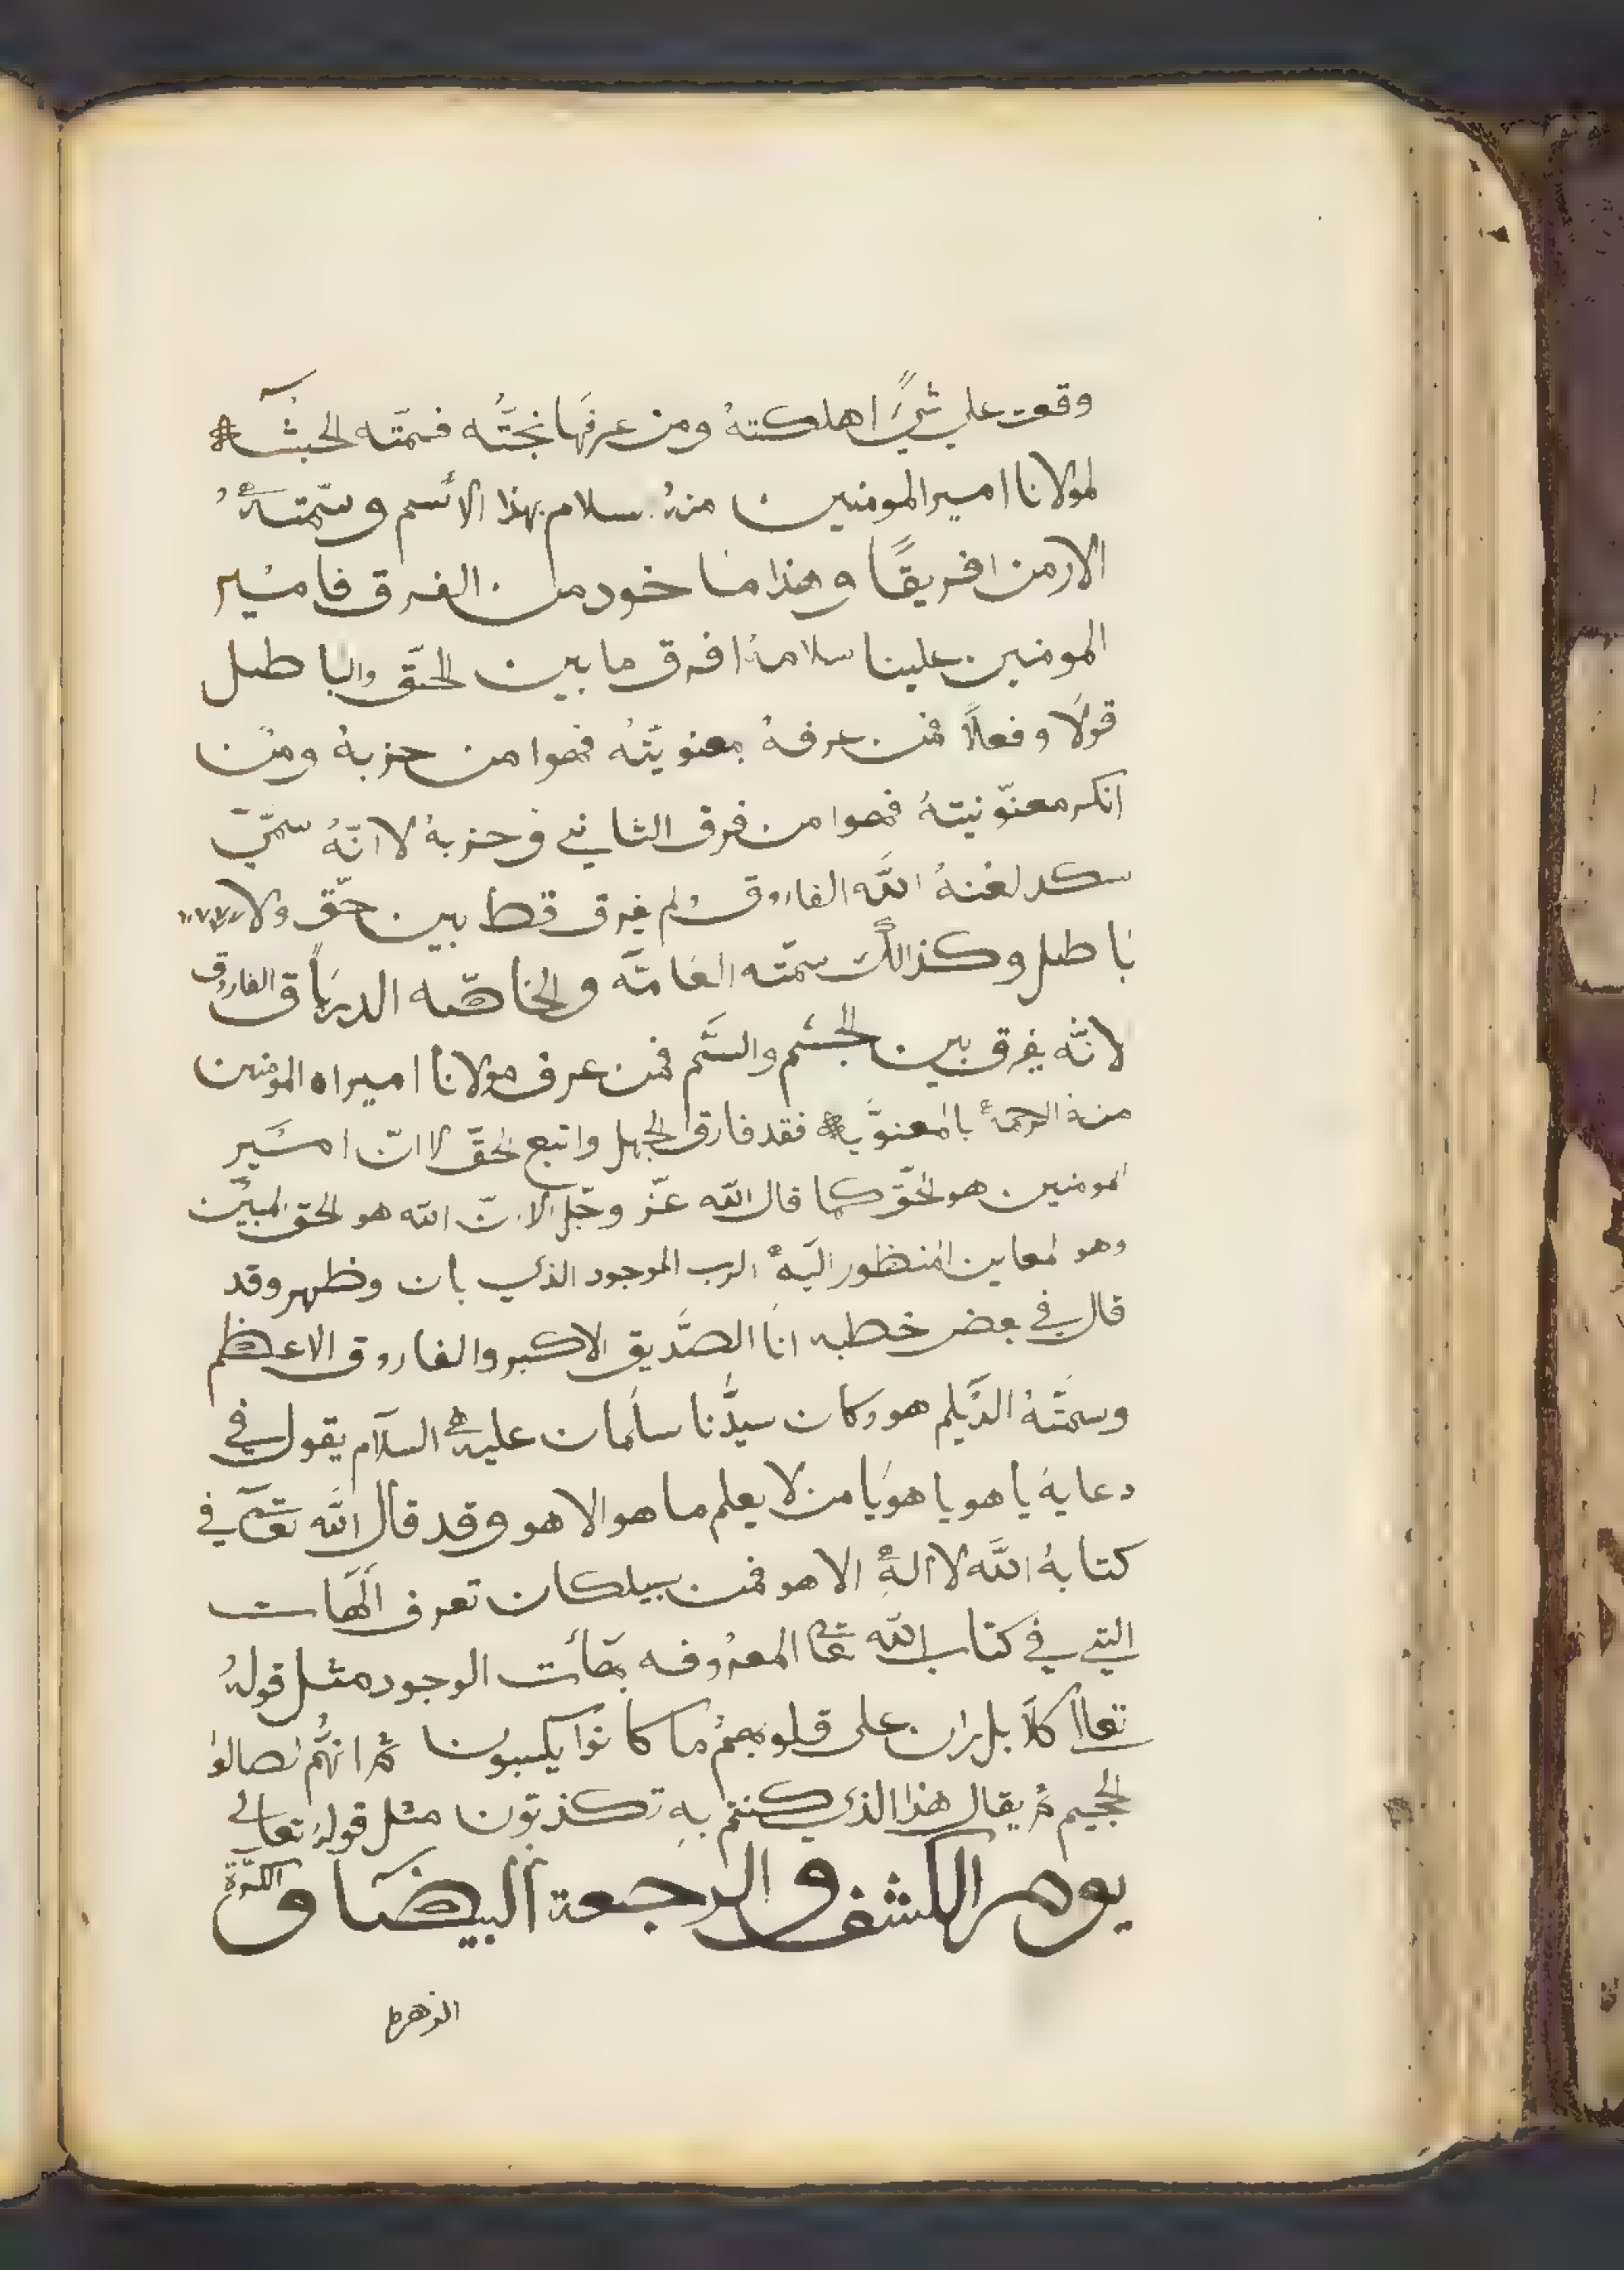 وقعت علي شيًء اهلكتهُ ومن عرفَها نجتُّه فسمتّه الحبشَه
لمولانا امير المومنين منهُ سلام بهذا الاسم وسّمتهُ
الارمن افريقًا وهذا ماخود من الفرق فامير
المومنين علينا سلامهُ افرق ما بين الحقّ والباطل
قولًا وفعلاً فمن عرفهُ بمعنويتّهُ فهوا من حزبهُ ومن
انكر معنوّنيتهُ فهوا من فرق الثاني وحزبهُ لاانّهُ سميّ
سكد لعنهُ اللّه الفاروق ولم يفرق قط بين حقّ ولا
باطل وكذالك سمّته العامّه والخاصّه الدرياق الفاروق
لانّه يفرق بين الجسم والسّم فمن عرف مولانا امير المومنين
منهُ الرحمهُ بالمعنويّه فقد فارق الجهل واتبع الحقّ لاانّ امير
المومنين هو الحقّ كما قال اللّه عزّ وجّل الا انّ اللّه هو الحق المبين
وهو المعاين المنظور اليهُ الرب الموجود الذي بان وظهر وقد
قال في بعض خطبه انا الصدّيق الاكبر والفاروق الاعظم
وسمّتهُ الدّيلم هور وكان سيدّنا سلمان عليه السلام يقول في
دعايهُ يا هو يا هو يا من لا يعلم ما هو الا هو وقد قال اللّه تعا في
كتابهُ اللّه لا الهُ الا هو فمن سبيلك ان تعرف الهات
التي في كتاب اللّه تعا المعروفه بهآت الوجود مثل قولهُ
تعالا كلاّ بل ران على قلوبهم ما كانوا يكسبون ثم انهّم لصالوا
الجحيم ثم يقال هذا الذي كنتم بهِ تكذبون مثل قولهُ تعالي
يوم الكشف والرجعة البيضا والكرّة
الزهرا